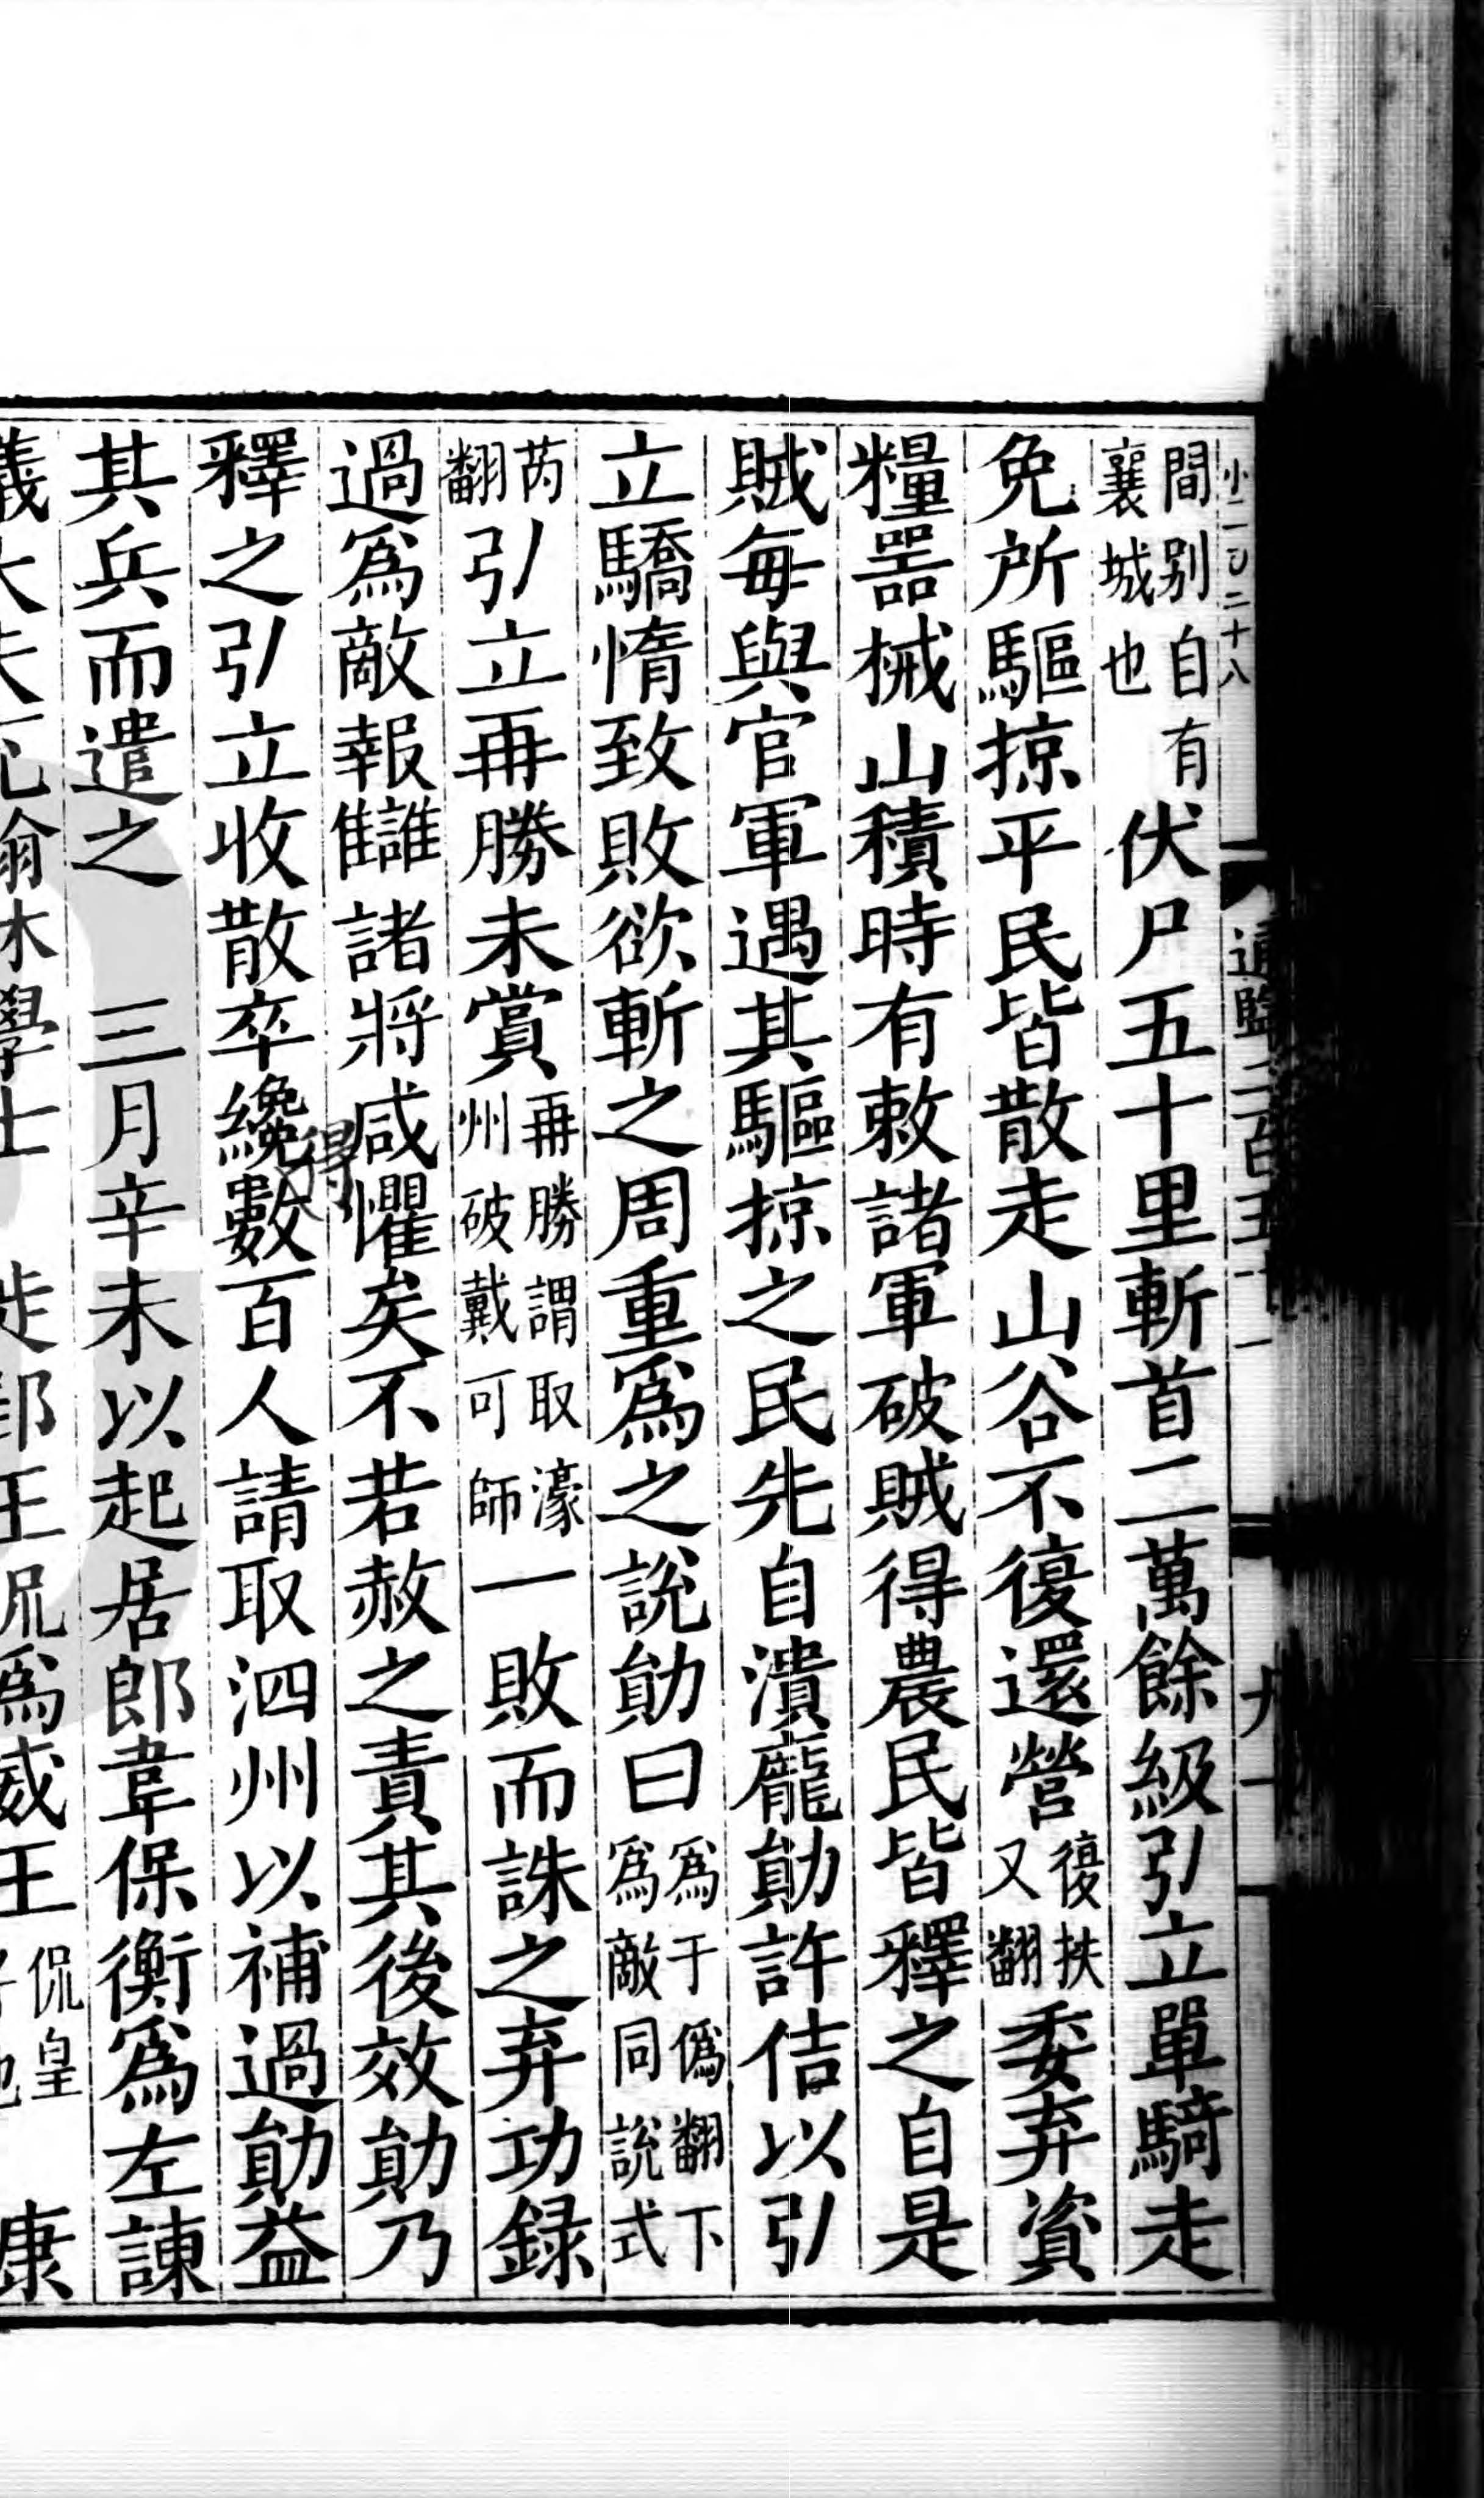 小二百二十八
通鑑二百五十一
間別自有襄城也伏尸五十里斬首二萬餘級引立單騎走
免所驅掠平民皆散走山谷不復還營復扶又翻委弃資
糧器械山積時有敕諸軍破賊得農民皆釋之自是
賊每與官軍遇其驅掠之民先自潰龐勛許佶以引
立驕惰致敗欲斬之周重爲之說勛曰爲于僞翻下爲敵同說式
芮翻引立再勝未賞再勝謂取濠州破戴可師一敗而誅之弃功錄
過爲敵報讎諸將咸懼矣不若赦之責其後效勛乃
釋之引立收散卒纔得數百人請取泗州以補過勛益
其兵而遣之　三月辛未以起居郎韋保衡爲左諫
議大夫充翰林學士　徙郢王侃爲威王侃皇子也　康